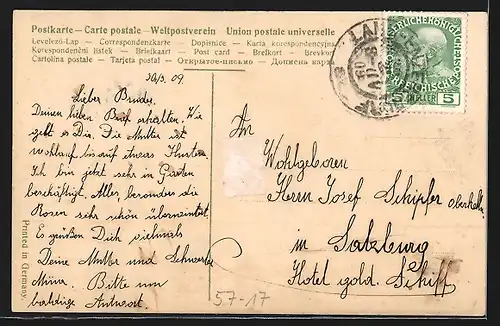 Postkarte – Carte postale – Weltpostverein – Union postale universelle
Levelező-Lap – Correspondenzkarte – Dopisnice – Karta korespondencyjna
Korespondenční lístek – Briefkaart – Post card – Brefkort – Brevkort
Cartolina postale – Tarjeta postal – Открытое письмо – Дописна карта
5 HELLER 5
30/3. 09
Lieber Bruder.
Deinen lieben Brief erhalten. Wie
geht es Dir. Die Mutter ist
wohlauf bis auf etwas Husten.
Ich bin jetzt sehr in Garten
beschäftigt. Alles, besonders die
Rosen sehr schön überwintert.
Es grüßen Dich vielmals
Deine Mutter und Schwester
Bitte um
baldige Antwort.
An
Wohlgeboren
Herrn Josef Schipfer
in Salzburg
Hotel gold. Schiff
57-17
Printed in Germany.